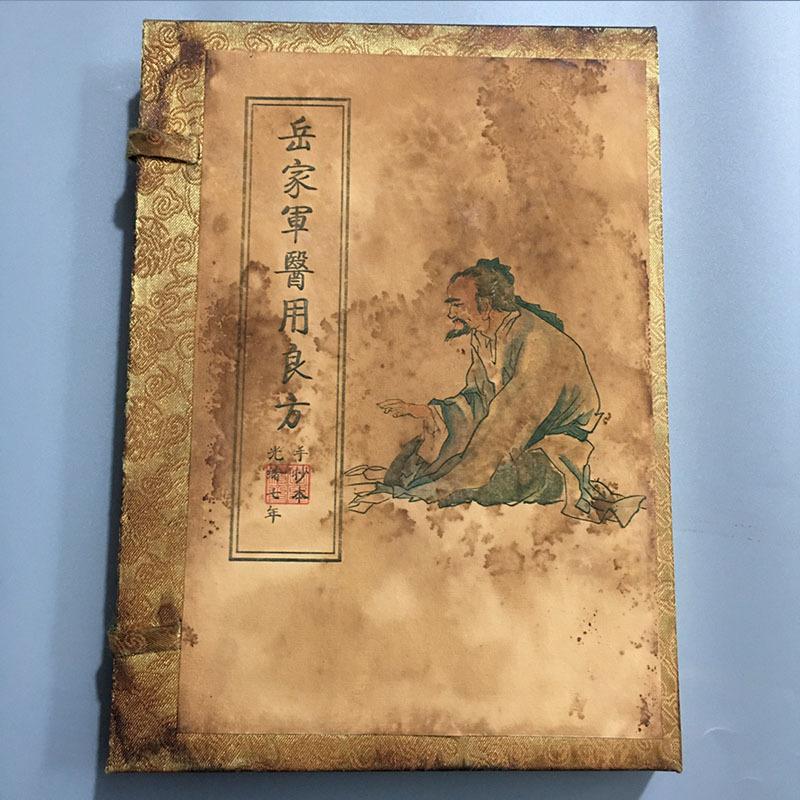 岳家軍醫用良方
手抄本
光緒七年